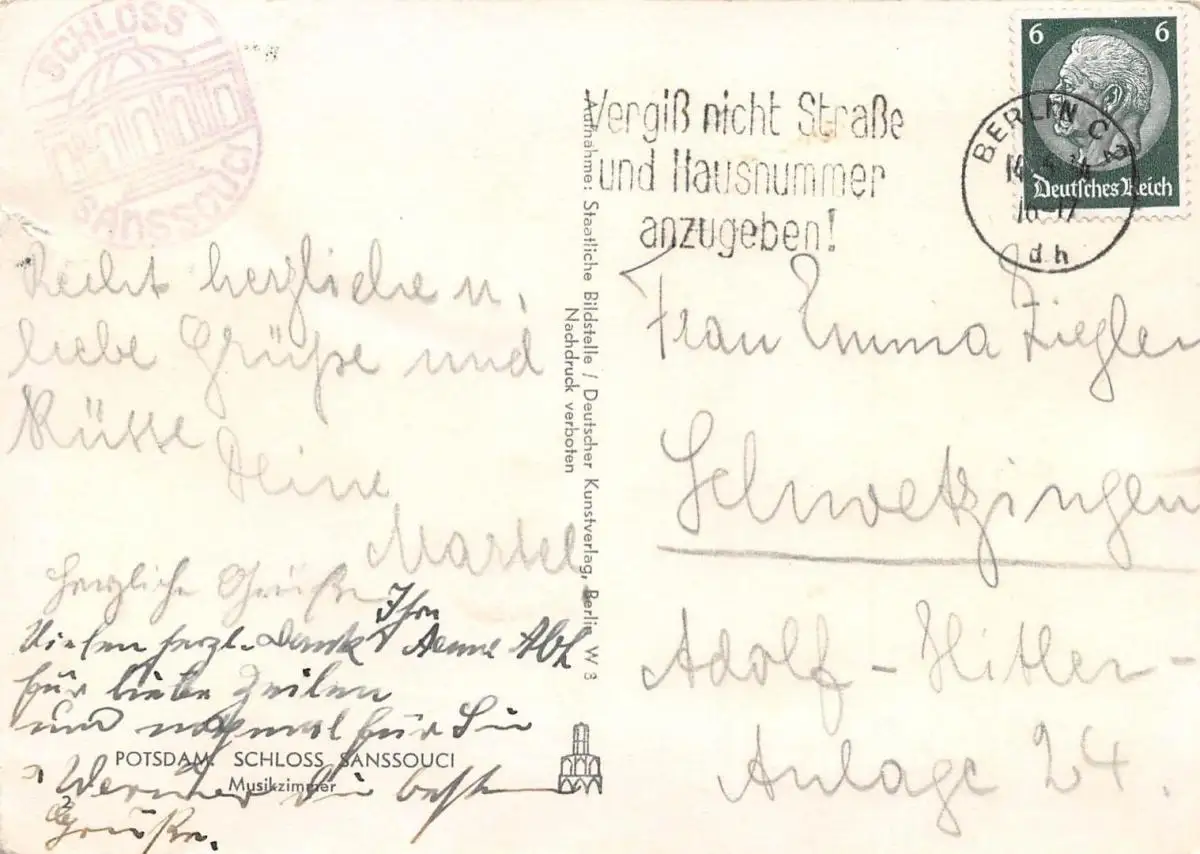 SCHLOSS
SANSSOUCI
Vergiß nicht Straße
und Hausnummer
anzugeben!
6 6
Deutsches Reich
BERLIN C 2
16-17
d h
Aufnahme: Staatliche Bildstelle / Deutscher Kunstverlag, Berlin W 3
Nachdruck verboten
Recht herzliche u.
liebe Grüße und
Küsse
Deine
Martel
Herzliche Grüße
Ihre
Vielen herzl. Dank Aenne
für liebe Zeilen
und nochmal für Sie
u Werner die besten
Grüße.
POTSDAM. SCHLOSS SANSSOUCI
Musikzimmer
2
Frau Emma Ziegler
Schwetzingen
Adolf-Hitler-
Anlage 24.